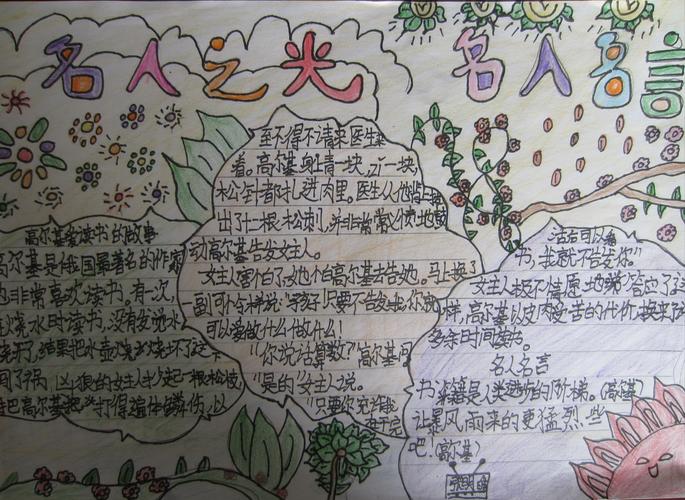 名人之光
名人名言
高尔基爱读书的故事
高尔基是俄国最著名的作家
也非常喜欢读书。有一次,
烧水时读书,没有发觉水
烧开,结果把水壶烧坏了
闯了祸,凶狠的女主人抄起一根松枝
高尔基打得遍体鳞伤,以
至不得不请来医生
看。高尔基身上青一块,紫一块,
松针都扎进肉里。医生从他背上
出了十二根松刺,并非常愤慨地鼓
动高尔基告发女主人。
女主人害怕了,她怕高尔基去告她。马上换了
一副可怜样说:"孩子!只要不告发我,你就
可以爱做什么做什么!
"你说话算数?"高尔基问
"是的"女主人说。
"只要你允许我
活后可以看
书,我就不告发你"
女主人极不情愿地答应了这
样,高尔基以皮肉受苦的代价,换来
多余时间读书。
名人名言
书籍是人类进步的阶梯。(高尔基)
让暴风雨来的更猛烈些
吧!(高尔基)